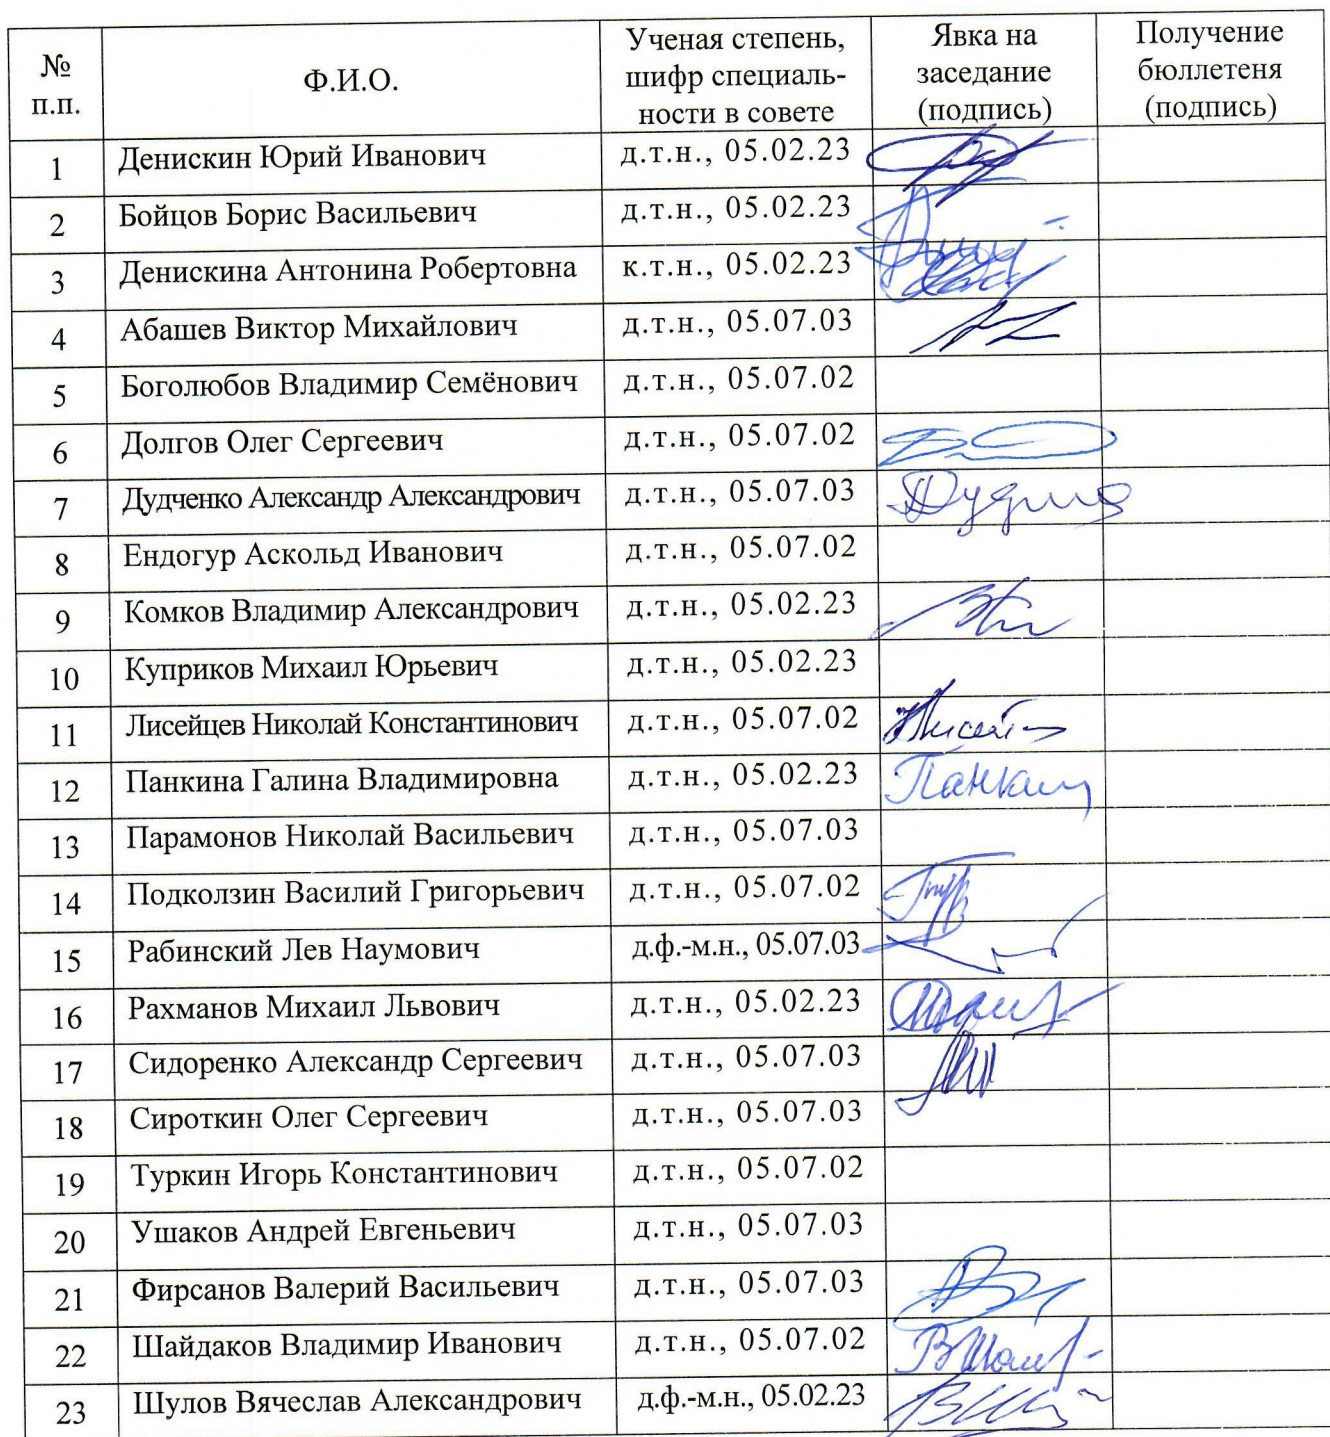 № п.п. Ф.И.О. Ученая степень, шифр специаль-ности в совете Явка на заседание (подпись) Получение бюллетеня (подпись)
1 Денискин Юрий Иванович д.т.н., 05.02.23
2 Бойцов Борис Васильевич д.т.н., 05.02.23
3 Денискина Антонина Робертовна к.т.н., 05.02.23
4 Абашев Виктор Михайлович д.т.н., 05.07.03
5 Боголюбов Владимир Семёнович д.т.н., 05.07.02
6 Долгов Олег Сергеевич д.т.н., 05.07.02
7 Дудченко Александр Александрович д.т.н., 05.07.03
8 Ендогур Аскольд Иванович д.т.н., 05.07.02
9 Комков Владимир Александрович д.т.н., 05.02.23
10 Куприков Михаил Юрьевич д.т.н., 05.02.23
11 Лисейцев Николай Константинович д.т.н., 05.07.02
12 Панкина Галина Владимировна д.т.н., 05.02.23
13 Парамонов Николай Васильевич д.т.н., 05.07.03
14 Подколзин Василий Григорьевич д.т.н., 05.07.02
15 Рабинский Лев Наумович д.ф.-м.н., 05.07.03
16 Рахманов Михаил Львович д.т.н., 05.02.23
17 Сидоренко Александр Сергеевич д.т.н., 05.07.03
18 Сироткин Олег Сергеевич д.т.н., 05.07.03
19 Туркин Игорь Константинович д.т.н., 05.07.02
20 Ушаков Андрей Евгеньевич д.т.н., 05.07.03
21 Фирсанов Валерий Васильевич д.т.н., 05.07.03
22 Шайдаков Владимир Иванович д.т.н., 05.07.02
23 Шулов Вячеслав Александрович д.ф.-м.н., 05.02.23